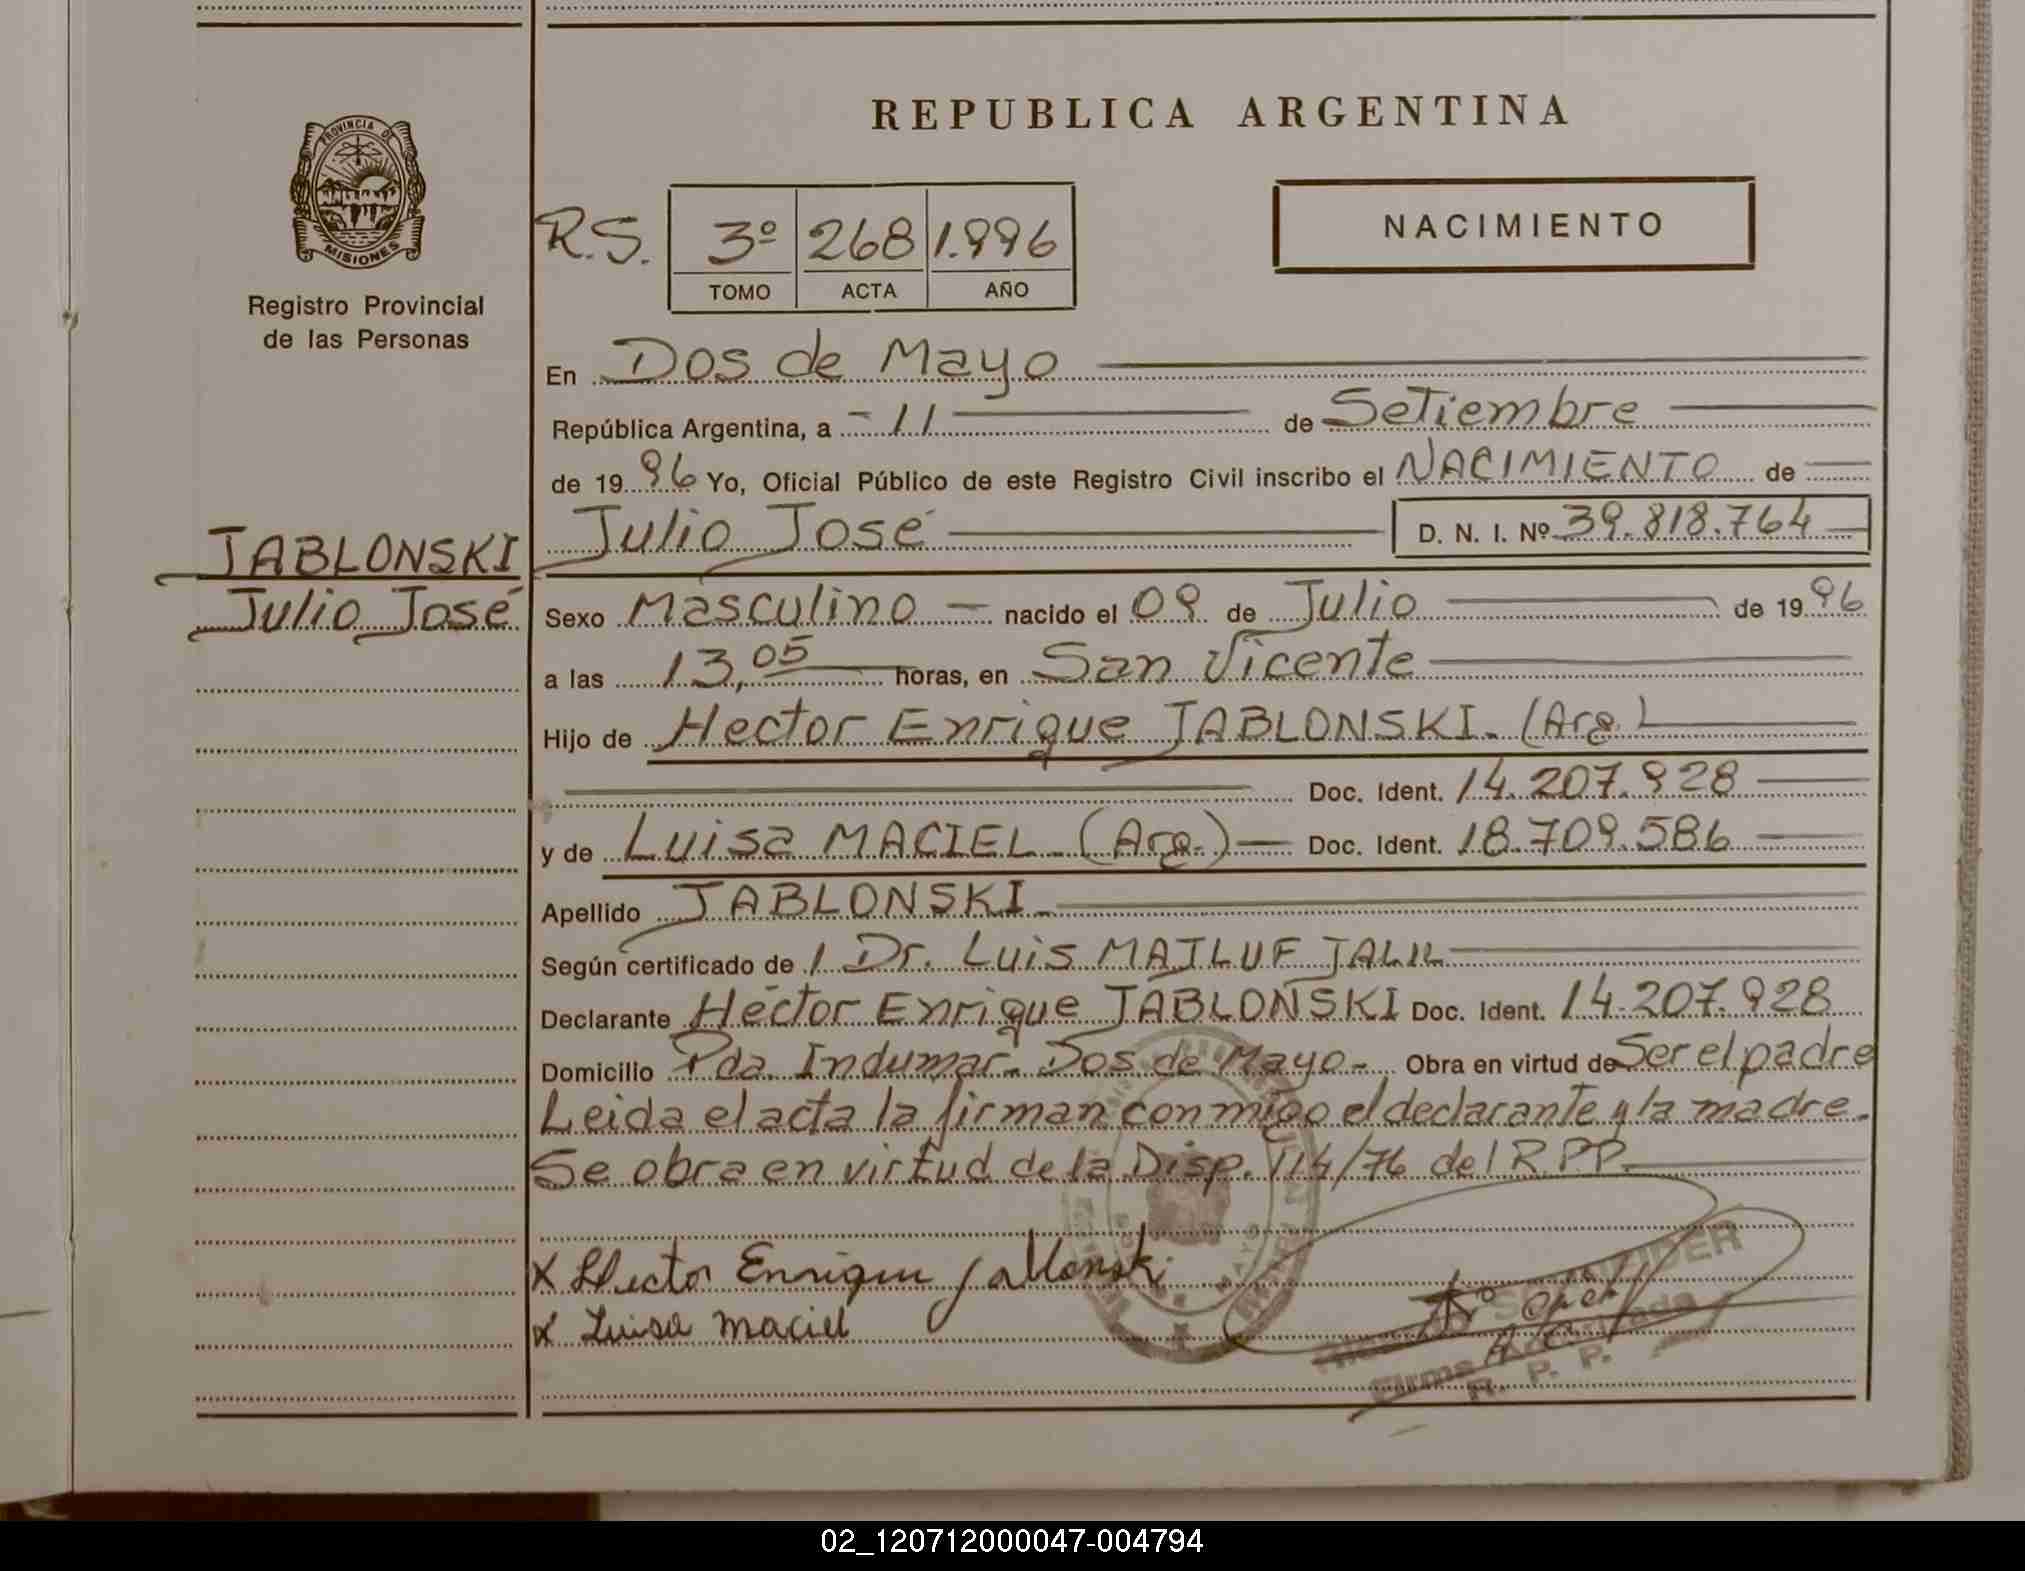 REPUBLICA ARGENTINA
PROVINCIA DE
MISIONES
Registro Provincial
de las Personas
R.S. 3º 268 1.996
TOMO ACTA AÑO
NACIMIENTO
En Dos de Mayo
República Argentina, a -11 de Setiembre
de 1996 Yo, Oficial Público de este Registro Civil inscribo el NACIMIENTO de
Julio José D. N. I. Nº 39.818.764
JABLONSKI
Julio José
Sexo Masculino nacido el 09 de Julio de 1996
a las 13,05 horas, en San Vicente
Hijo de Hector Enrique JABLONSKI. (Arg.)
Doc. Ident. 14.207.928
y de Luisa MACIEL (Arg.) Doc. Ident. 18.709.586
Apellido JABLONSKI
Según certificado de Dr. Luis MAJLUF JALIL
Declarante Héctor Enrique JABLONSKI Doc. Ident. 14.207.928
Domicilio Pda. Indumar. Dos de Mayo.- Obra en virtud de Ser el padre
Leida el acta la firman conmigo el declarante y la madre.
Se obra en virtud de la Disp. 114/76 del R.P.P.
X Hector Enrique Jablonski
X Luisa Maciel
Firma Autorizada
R. P. P.
02_120712000047-004794